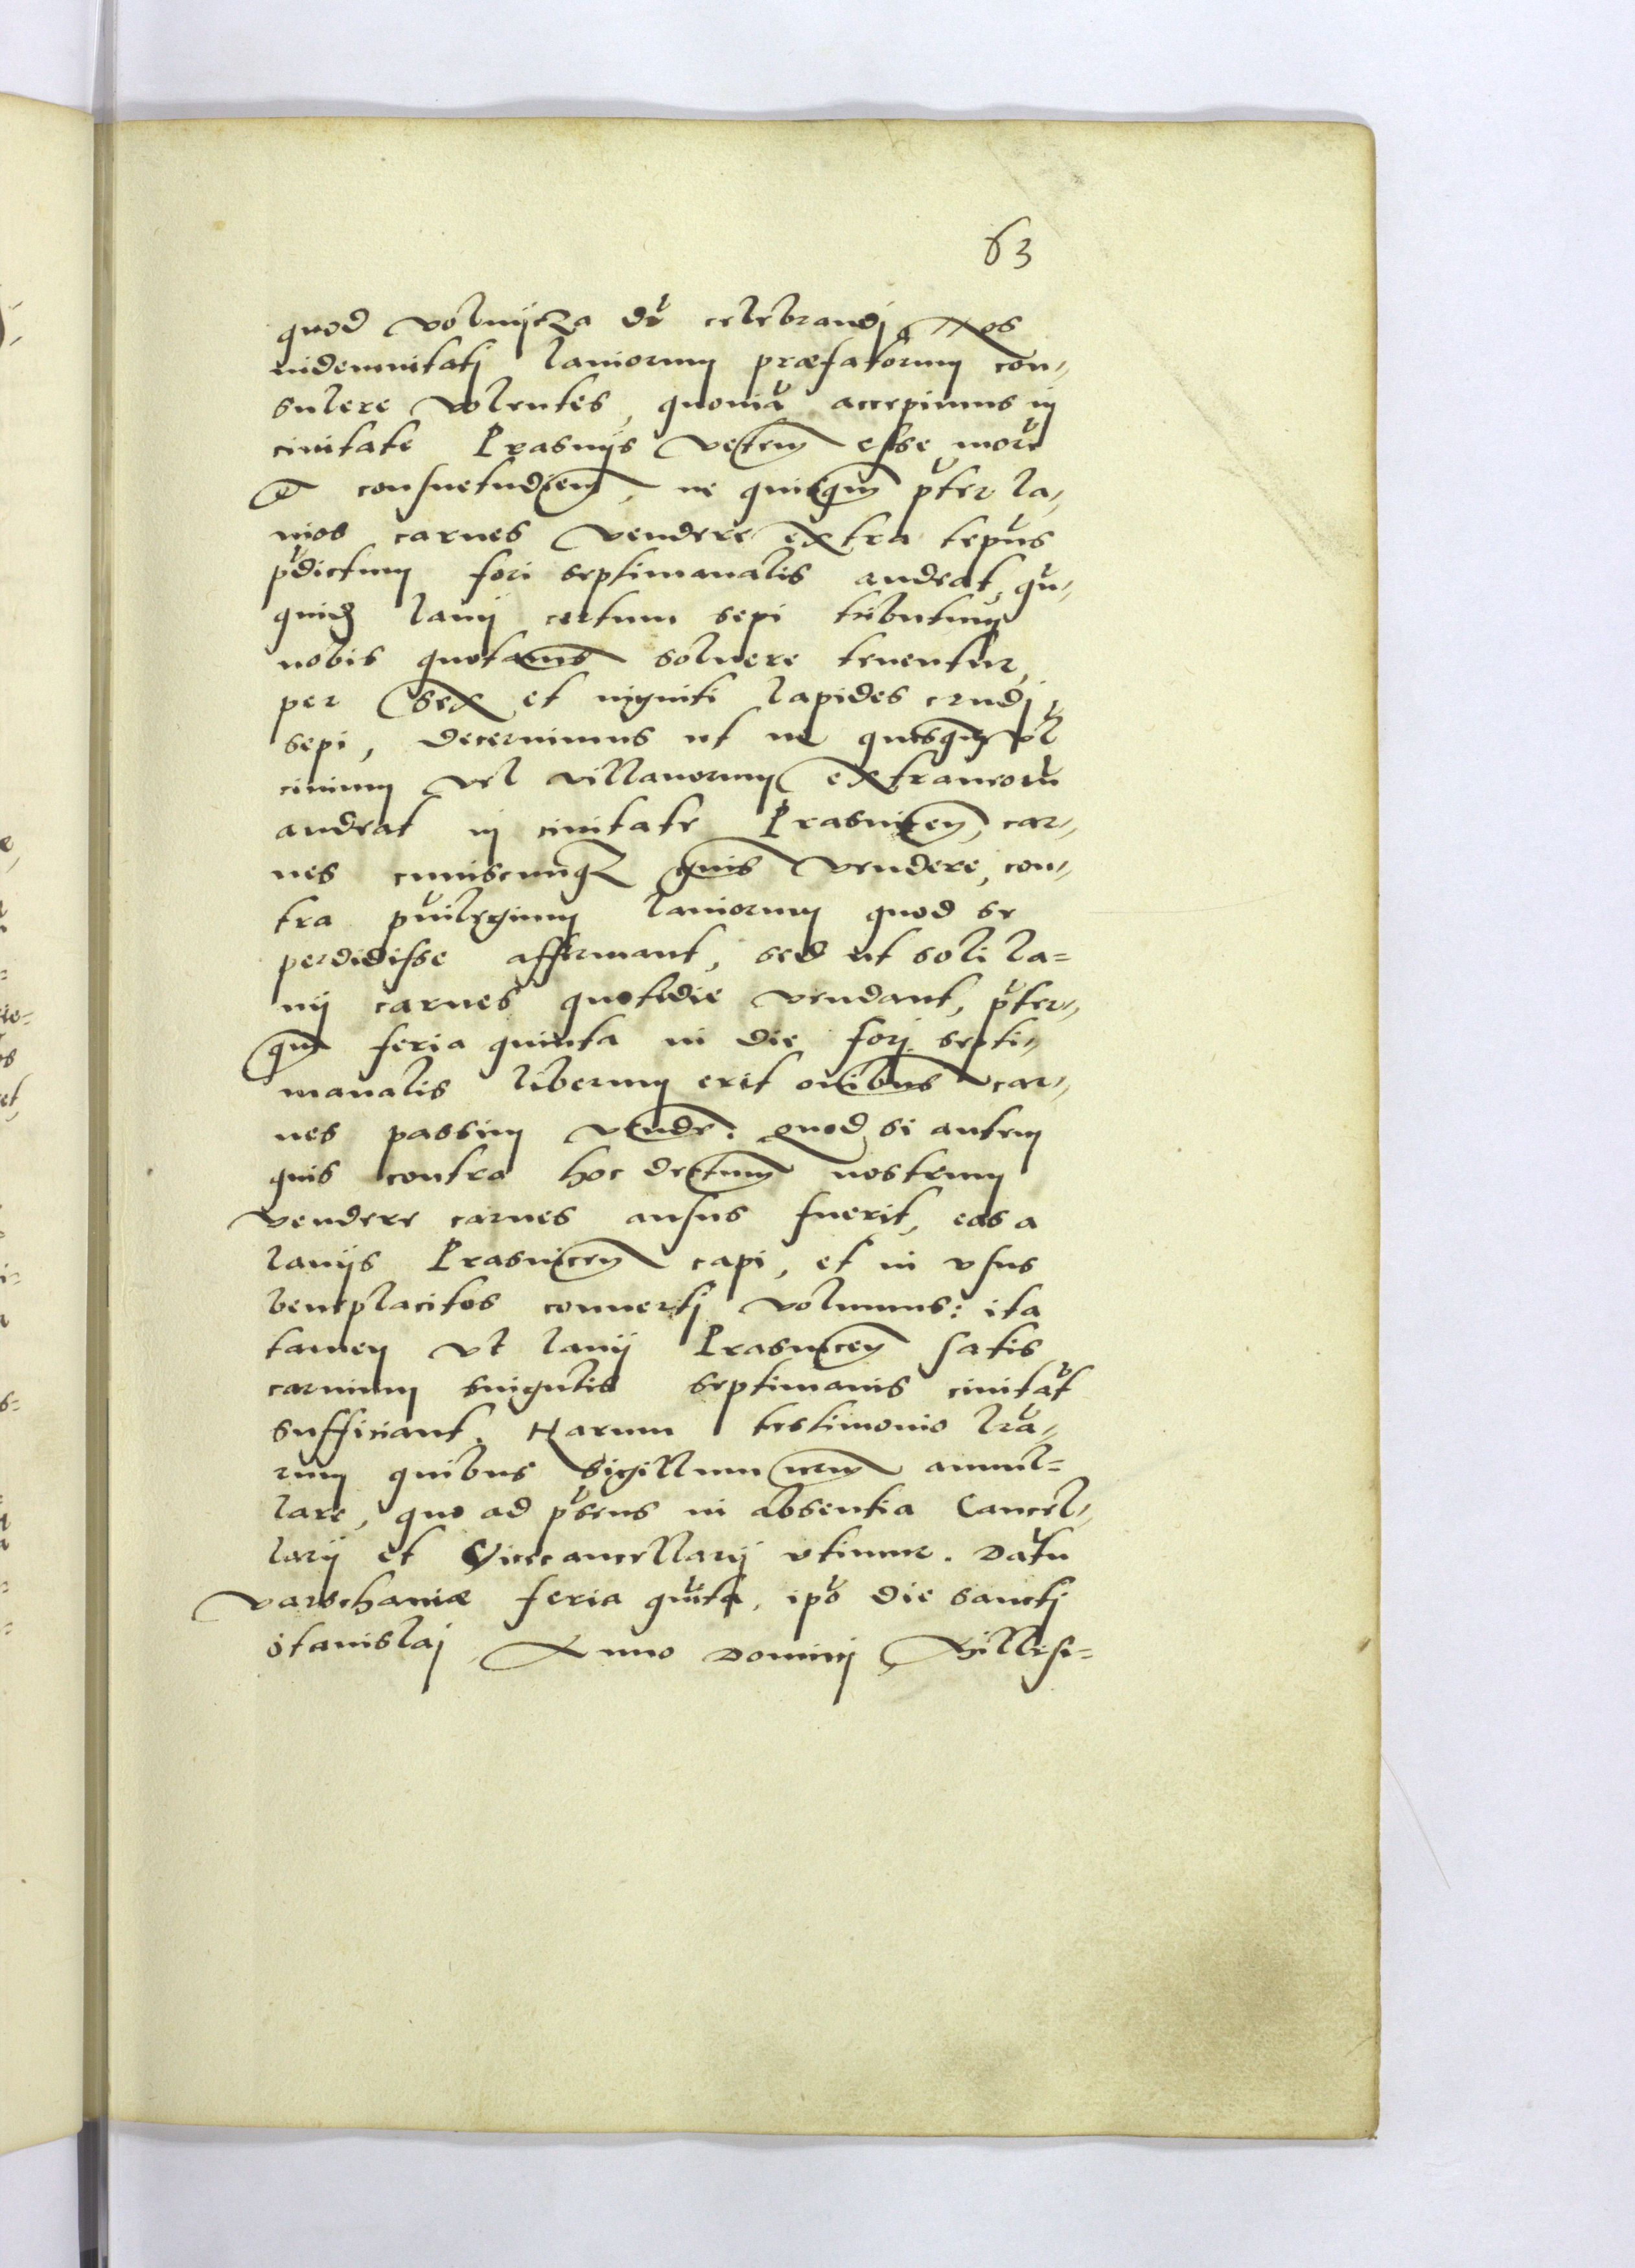 63
quod volnijcza dr̃ celebrandj, Nos
indemnitatj laniorum præfatorum con-
sulere volentes, quoniã accepimus in
ciuitate Prasnijs vetrem esse morẽ
et consuetudiem, ne quisqm p̃ter la-
nios carnes vendere extra tẽpus
p̃dictum fori septimanalis audeat, qu-
quidẽ lanij certum sepi tributum
nobis quotanis soluere tenentur,
per sex et uiginti lapides crudj
sepi, decernimus ut ne quisqm vl
ciuium vel villanorum extraneorũ
audeat in ciuitate Prasnicen, car-
nes cuiuscunqz gnis vendere, con-
tra puilegium laniorum quod se
perdidisse affirmant, sed ut soli la=
nij carnes quotidie vendant, p̃ter-
qm feria quinta in die forj septi-
manalis liberum erit oibus car-
nes passim vendr: quod si autem
quis contra hoc dectum nostrum
vendere carnes ausus fuerit, eas a
lanijs Prasnicen capi, et in vsus
beneplacitos conuertj volumus: ita
tamen vt lanij Prasnicen satis
carnium singulis septimanis ciuitãt
sufficiant. Harum testimonio lrã-
rum quibus sigillum nrm annul=
lare, quo ad p̃sens in absentia Cancel-
larij et Vicecancellarij vtimur. Datũ
varschaniæ feria quĩta, ipõ die sanctj
Stanislaj Anno Dominj Millesi=